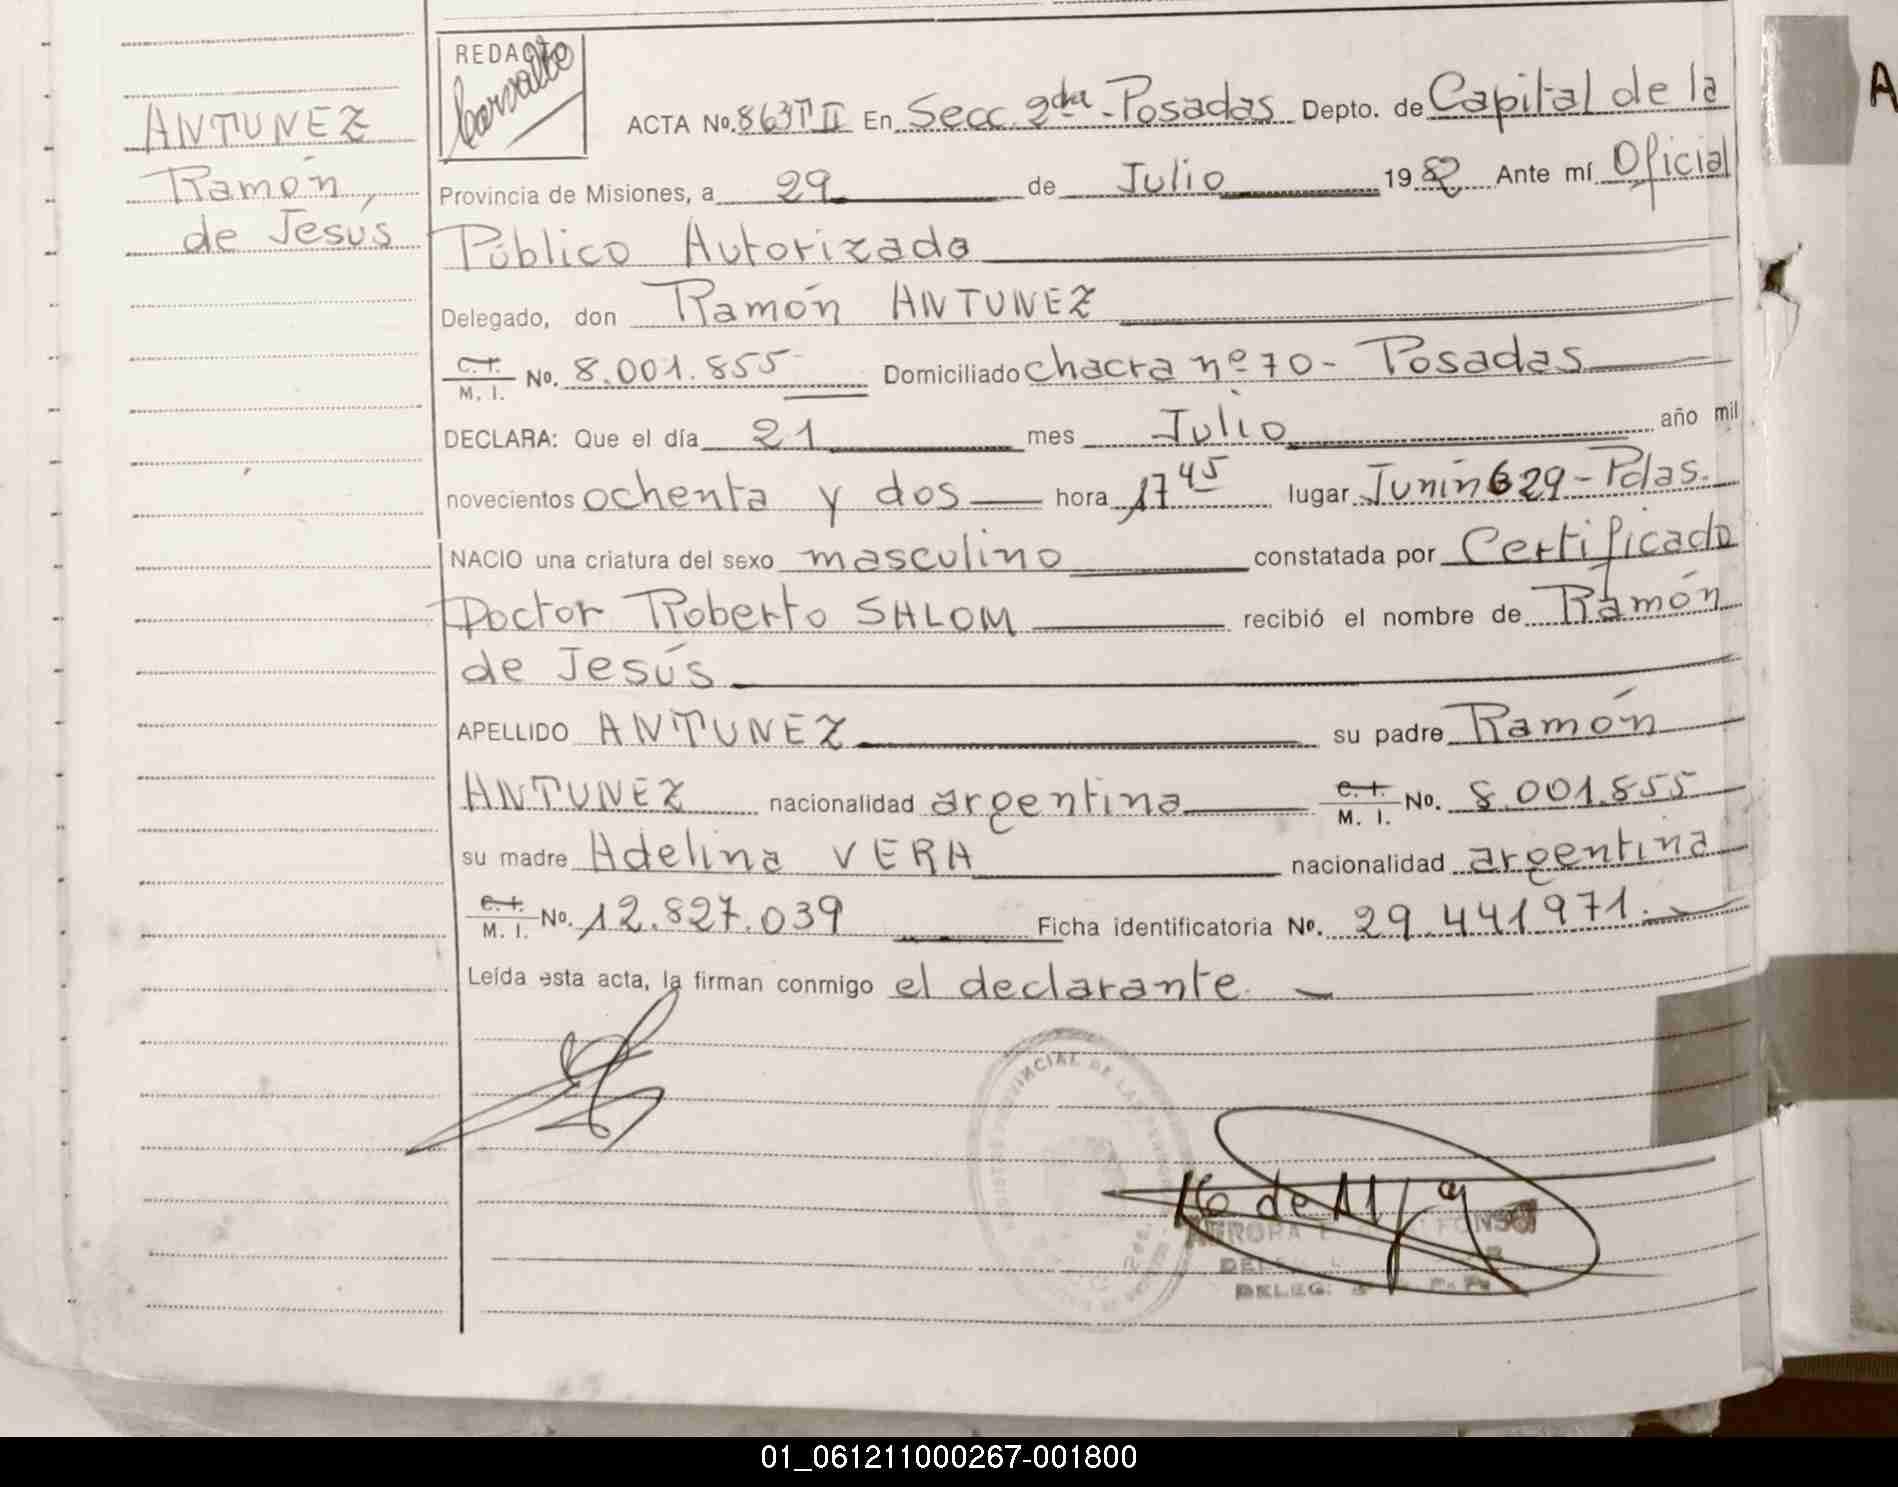 ANTUNEZ
Ramón
de Jesús
REDACTO
ACTA No. 863 T II En Secc. 2da - Posadas Depto. de Capital de la
Provincia de Misiones, a 29 de Julio 1982 Ante mí Oficial
Público Autorizado
Delegado, don Ramón ANTUNEZ
C.I. / M. I. No. 8.001.855 Domiciliado chacra nº 70 - Posadas
DECLARA: Que el día 21 mes Julio año mil
novecientos ochenta y dos hora 17 45 lugar Junín 629 - Pdas.
NACIO una criatura del sexo masculino constatada por Certificado
Doctor Roberto SHLOM recibió el nombre de Ramón
de Jesús
APELLIDO ANTUNEZ su padre Ramón
ANTUNEZ nacionalidad argentina C.I. / M. I. No. 8.001.855
su madre Adelina VERA nacionalidad argentina
C.I. / M. I. No. 12.827.039 Ficha identificatoria No. 29.441971.
Leída esta acta, la firman conmigo el declarante.
PROVINCIAL DE LAS
AURORA
01_061211000267-001800
A